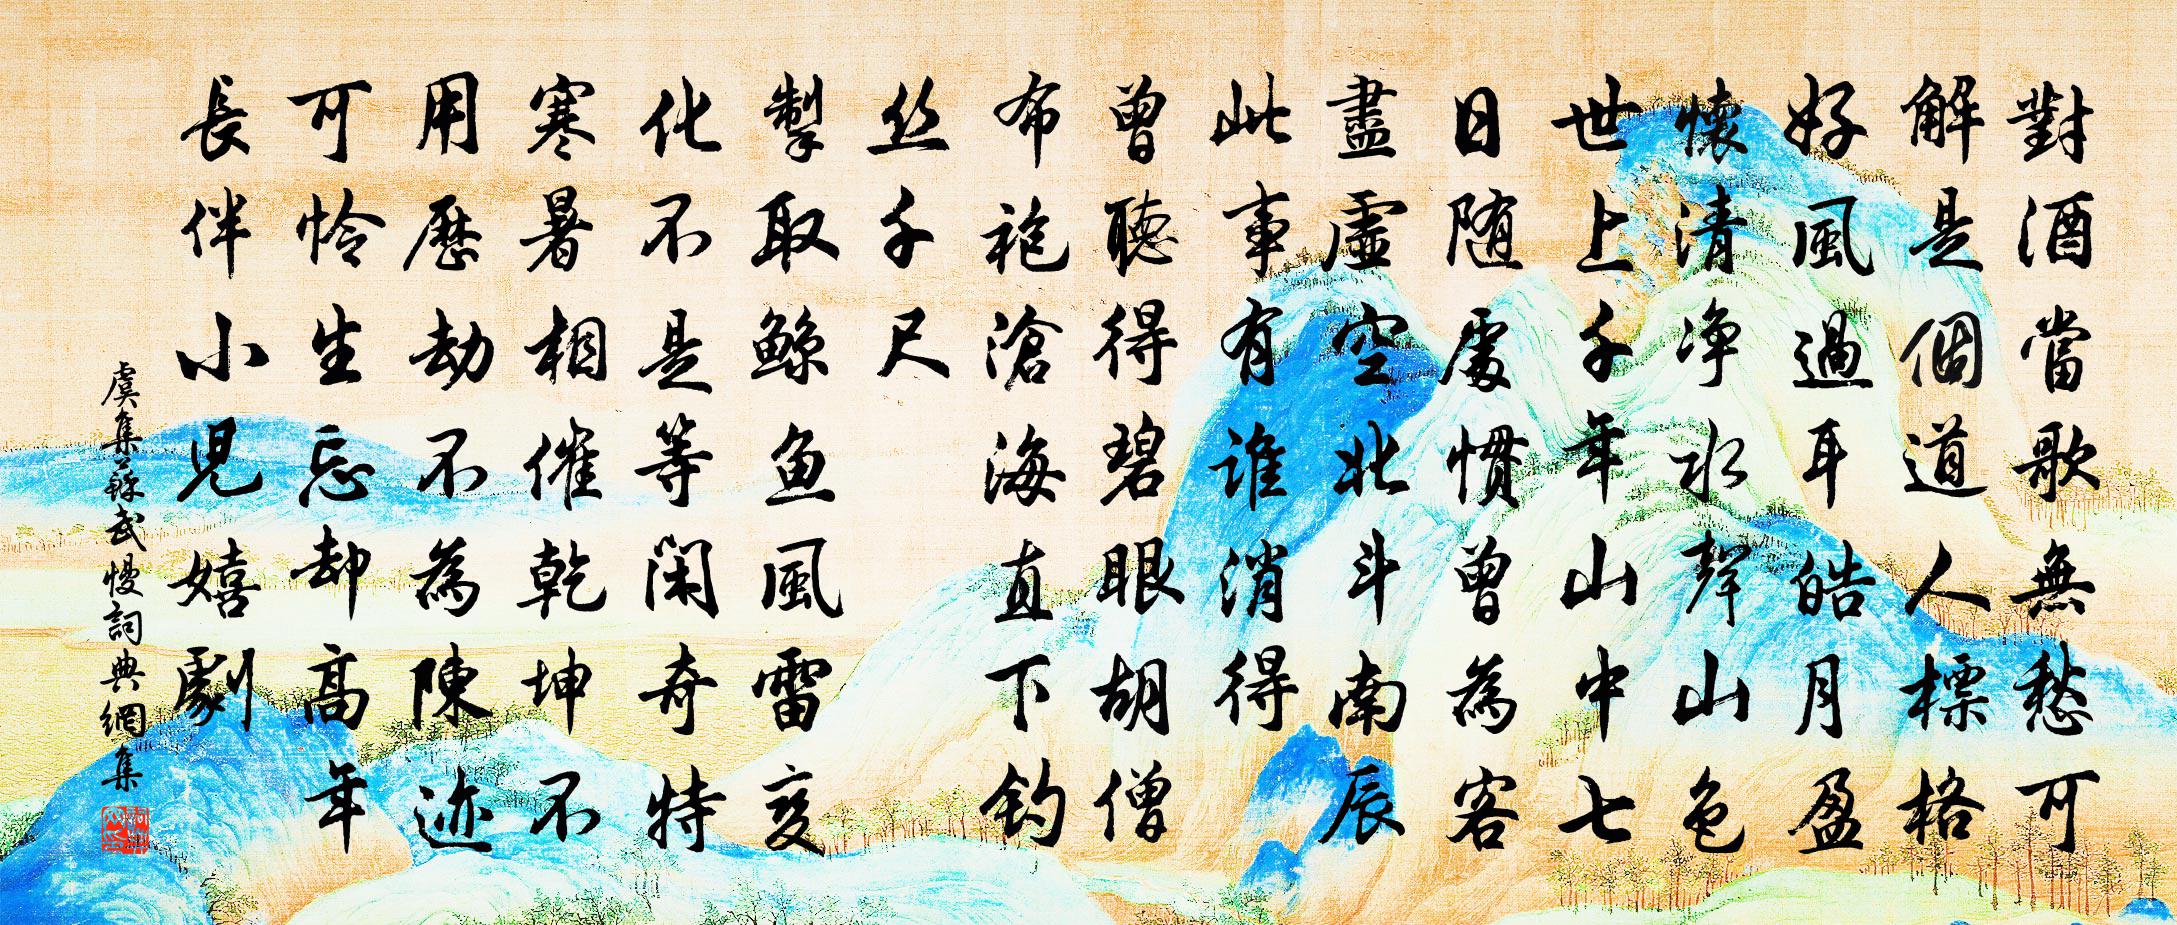 對酒當歌無愁可
解是個道人標格
好風過耳皓月盈
懷清净水聲山色
世上千年山中七
日随處慣曾為客
盡虛空北斗南辰
此事有誰消得
曾聽得碧眼胡僧
布袍滄海直下釣
丝千尺
掣取鯨鱼風雷变
化不是等闲奇特
寒暑相催乾坤不
用歷劫不為陳迹
可怜生忘却高年
長伴小児嬉劇
虞集蘇武慢詞典網集